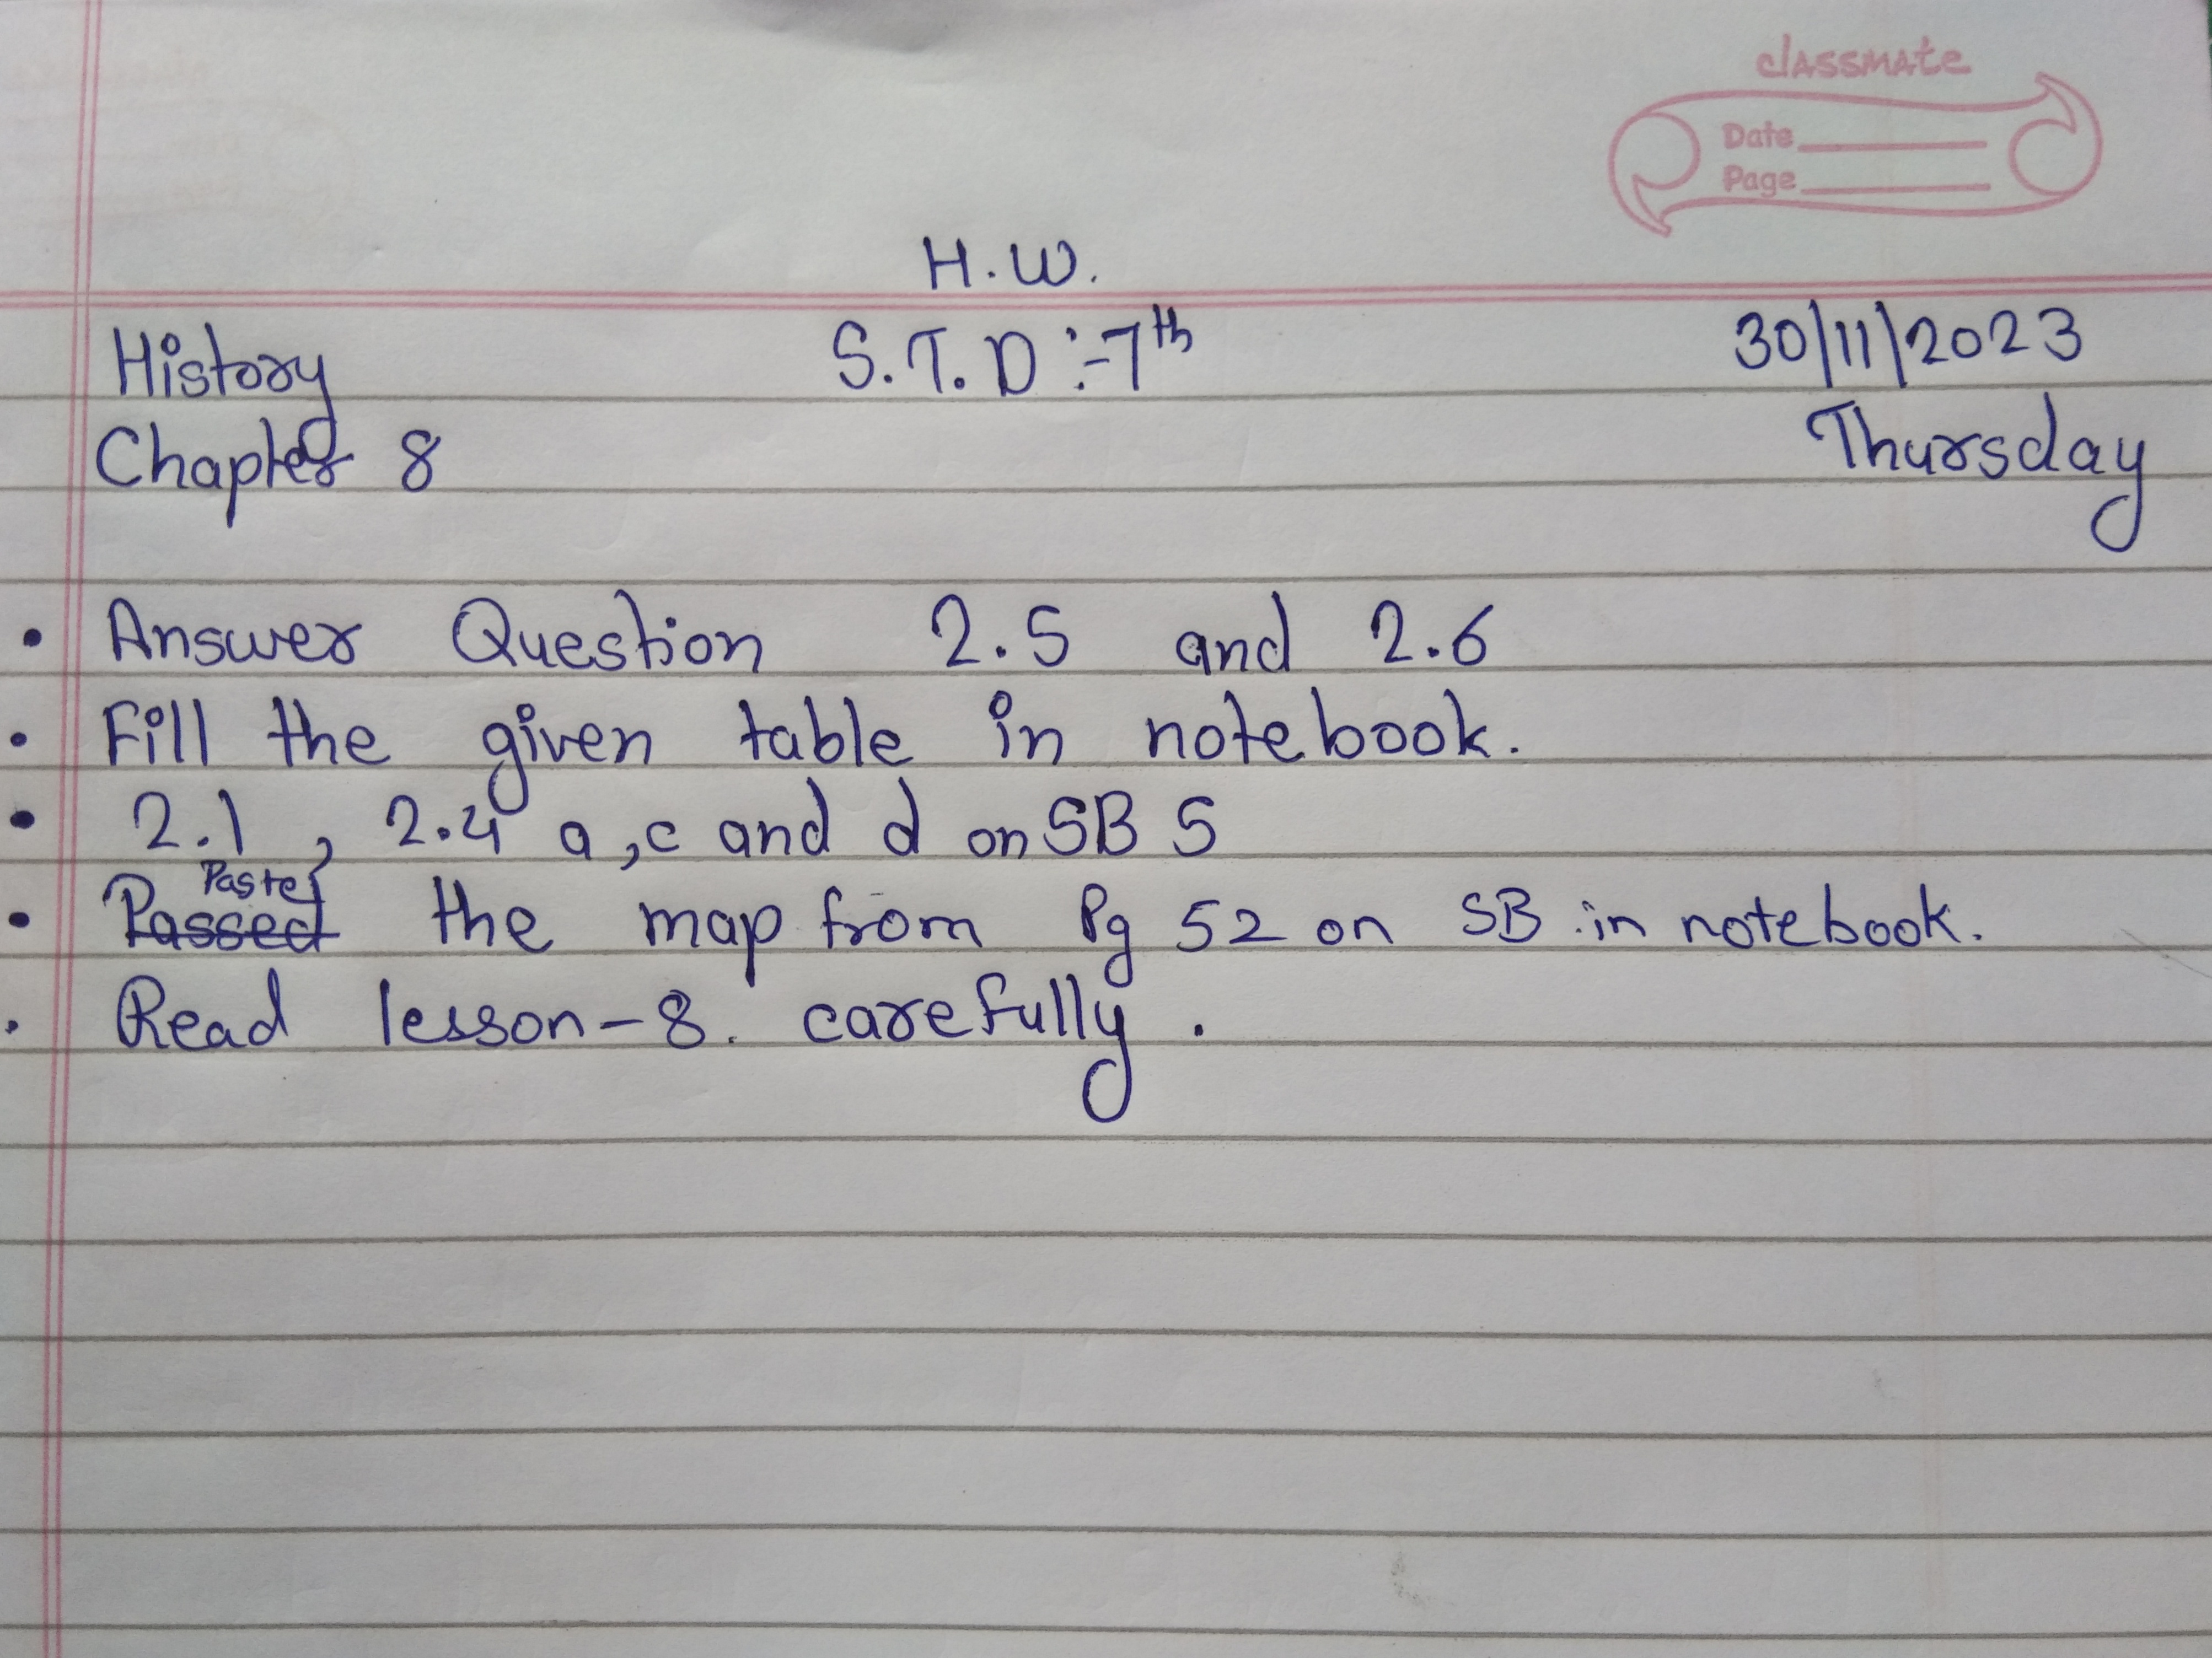 classmate
Date
Page
H.W.
History S.T.D :- 7th 30/11/2023
Chapter 8 Thursday
• Answer Question 2.5 and 2.6
• Fill the given table in notebook.
• 2.1, 2.4 a, c and d on SB 5
Paste
• Passed the map from Pg 52 on SB in notebook.
• Read lesson-8. carefully.